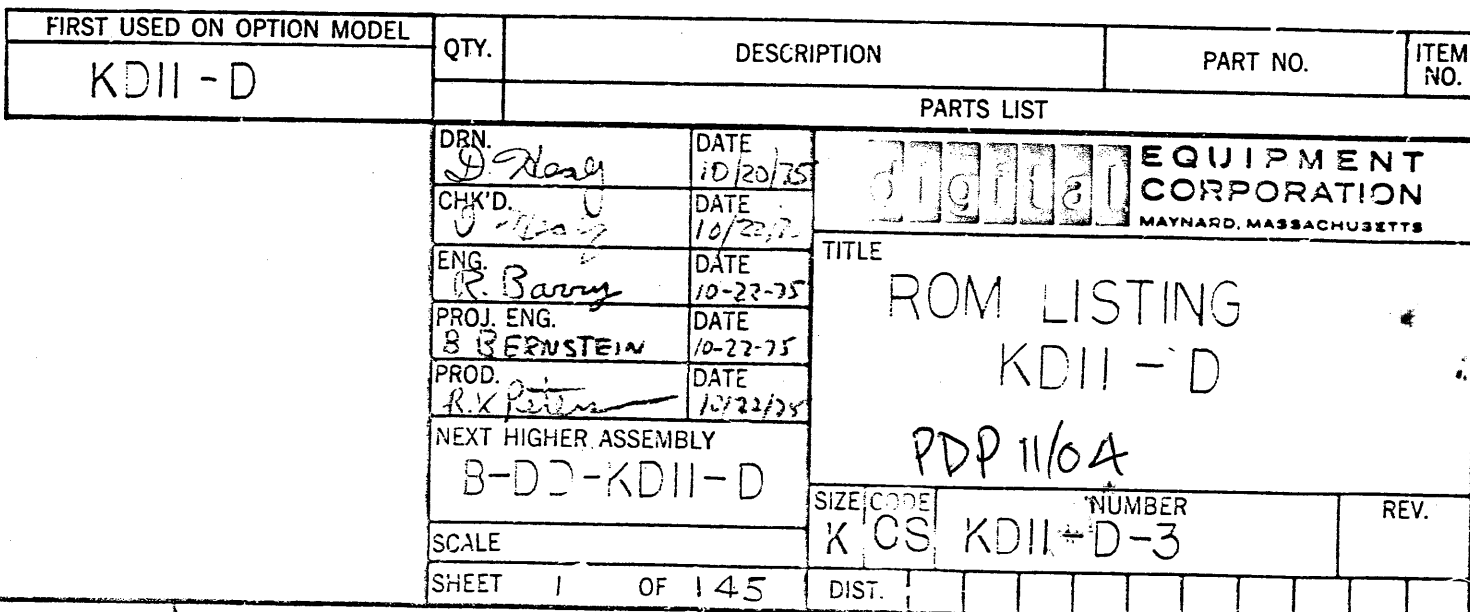 FIRST USED ON OPTION MODEL
KD11-D
QTY.
DESCRIPTION
PART NO.
ITEM NO.
PARTS LIST
DRN.
DATE
10/20/75
CHK'D.
DATE
ENG.
R. Barry
DATE
10-22-75
PROJ. ENG.
B BERNSTEIN
DATE
10-22-75
PROD.
DATE
10/22/75
NEXT HIGHER ASSEMBLY
B-DD-KD11-D
SCALE
SHEET 1 OF 145
digital
EQUIPMENT
CORPORATION
MAYNARD, MASSACHUSETTS
TITLE
ROM LISTING
KD11-D
PDP 11/04
SIZE
K
CODE
CS
NUMBER
KD11-D-3
REV.
DIST.